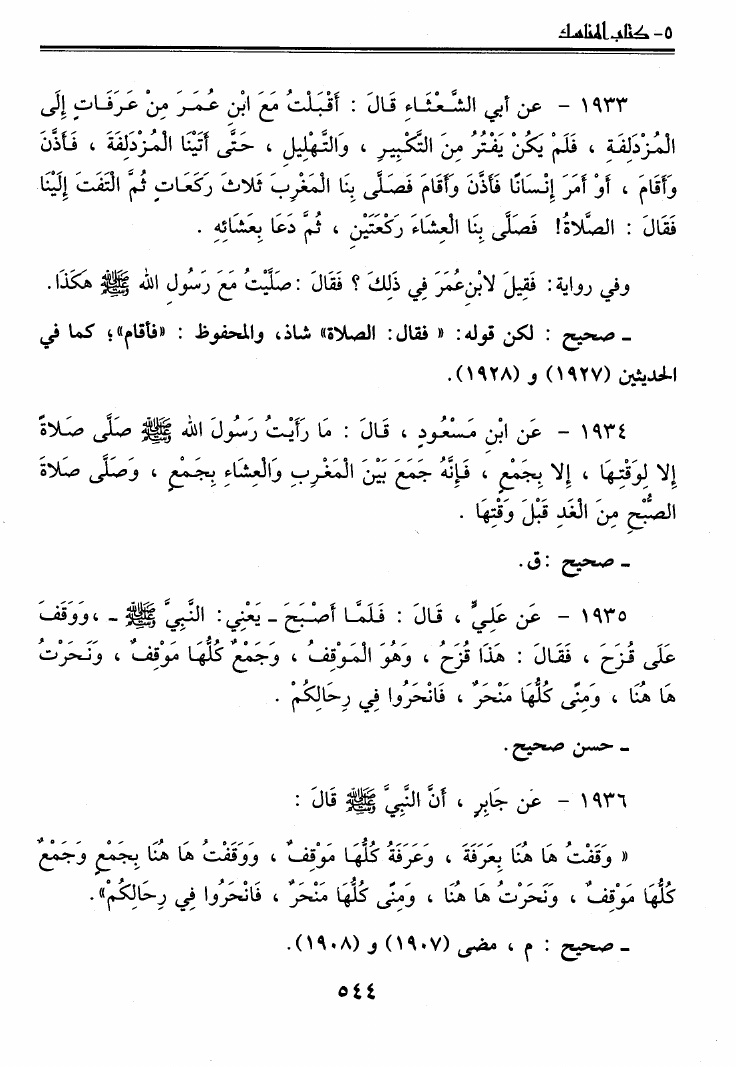 ٥- كتاب المناسك
١٩٣٣ - عن أبي الشَّعْثَاءِ قَالَ : أَقْبَلْتُ مَعَ ابْنِ عُمَرَ مِنْ عَرَفَاتٍ إِلَى
الْمُزْدَلِفَةِ ، فَلَمْ يَكُنْ يَفْتُرُ مِنَ التَّكْبِيرِ ، وَالتَّهْلِيلِ ، حَتَّى أَتَيْنَا الْمُزْدَلِفَةَ ، فَأَذَّنَ
وَأَقَامَ ، أَوْ أَمَرَ إِنْسَانًا فَأَذَّنَ وَأَقَامَ فَصَلَّى بِنَا الْمَغْرِبَ ثَلاثَ رَكَعَاتٍ ثُمَّ الْتَفَتَ إِلَيْنَا
فَقَالَ : الصَّلاةُ! فَصَلَّى بِنَا الْعِشَاءَ رَكْعَتَيْنِ ، ثُمَّ دَعَا بِعَشَائِهِ .
وفي رواية: فَقِيلَ لابْنِ عُمَرَ فِي ذَلِكَ ؟ فَقَالَ :صَلَّيْتُ مَعَ رَسُولِ الله ﷺ هَكَذَا.
ـ صحيح : لكن قوله: « فقال: الصلاة» شاذ، والمحفوظ : «فأقام»؛ كما في
الحديثين (١٩٢٧) و (١٩٢٨).
١٩٣٤ - عَن ابْنِ مَسْعُودٍ ، قَالَ : مَا رَأَيْتُ رَسُولَ الله ﷺ صَلَّى صَلاةً
إِلا لِوَقْتِهَا ، إِلا بِجَمْعٍ ، فَإِنَّهُ جَمَعَ بَيْنَ الْمَغْرِبِ وَالْعِشَاءِ بِجَمْعٍ ، وَصَلَّى صَلاةَ
الصُّبْحِ مِنَ الْغَدِ قَبْلَ وَقْتِهَا .
ـ صحيح :ق.
١٩٣٥ - عَن عَلِيٍّ ، قَالَ : فَلَمَّا أَصْبَحَ ـ يَعْنِي: النَّبِيَّ ﷺ ـ ،وَوَقَفَ
عَلَى قُزَحَ ، فَقَالَ : هَذَا قُزَحُ ، وَهُوَ الْمَوْقِفُ ، وَجَمْعٌ كُلُّهَا مَوْقِفٌ ، وَنَحَرْتُ
هَا هُنَا ، وَمِنًى كُلُّهَا مَنْحَرٌ ، فَانْحَرُوا فِي رِحَالِكُمْ .
ـ حسن صحيح.
١٩٣٦ - عَن جَابِرٍ ، أَنَّ النَّبِيَّ ﷺ قَالَ :
« وَقَفْتُ هَا هُنَا بِعَرَفَةَ ، وَعَرَفَةُ كُلُّهَا مَوْقِفٌ ، وَوَقَفْتُ هَا هُنَا بِجَمْعٍ وَجَمْعٌ
كُلُّهَا مَوْقِفٌ ، وَنَحَرْتُ هَا هُنَا ، وَمِنًى كُلُّهَا مَنْحَرٌ ، فَانْحَرُوا فِي رِحَالِكُمْ».
ـ صحيح : م ، مضى (١٩٠٧) و (١٩٠٨).
٥٤٤